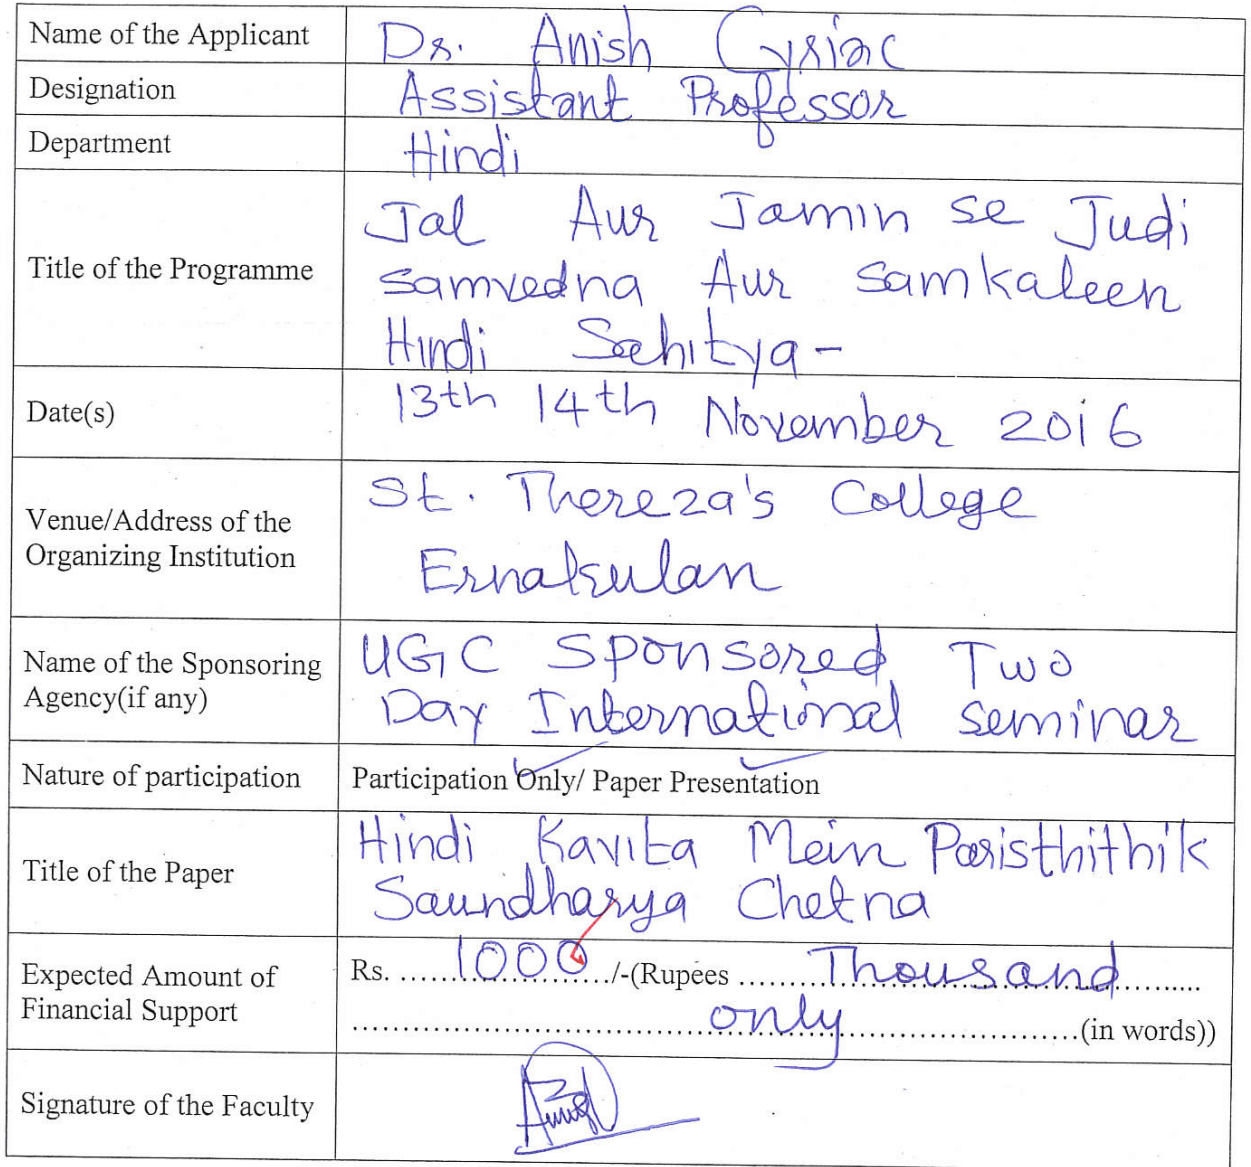 Name of the Applicant Dr. Anish Cyriac
Designation Assistant Professor
Department Hindi
Title of the Programme
Jal Aur Jamin se Judi
samvedna Aur samkaleen
Hindi Sahitya -
Date(s) 13th 14th November 2016
Venue/Address of the
Organizing Institution
St. Thereza's College
Ernakulan
Name of the Sponsoring
Agency(if any)
UGC Sponsored Two
Day International seminar
Nature of participation Participation Only/ Paper Presentation
Title of the Paper
Hindi Kavita Mein Paristhithik
Saundharya Chetna
Expected Amount of
Financial Support
Rs. ....1000..../-(Rupees ....Thousand....
....only....(in words))
Signature of the Faculty